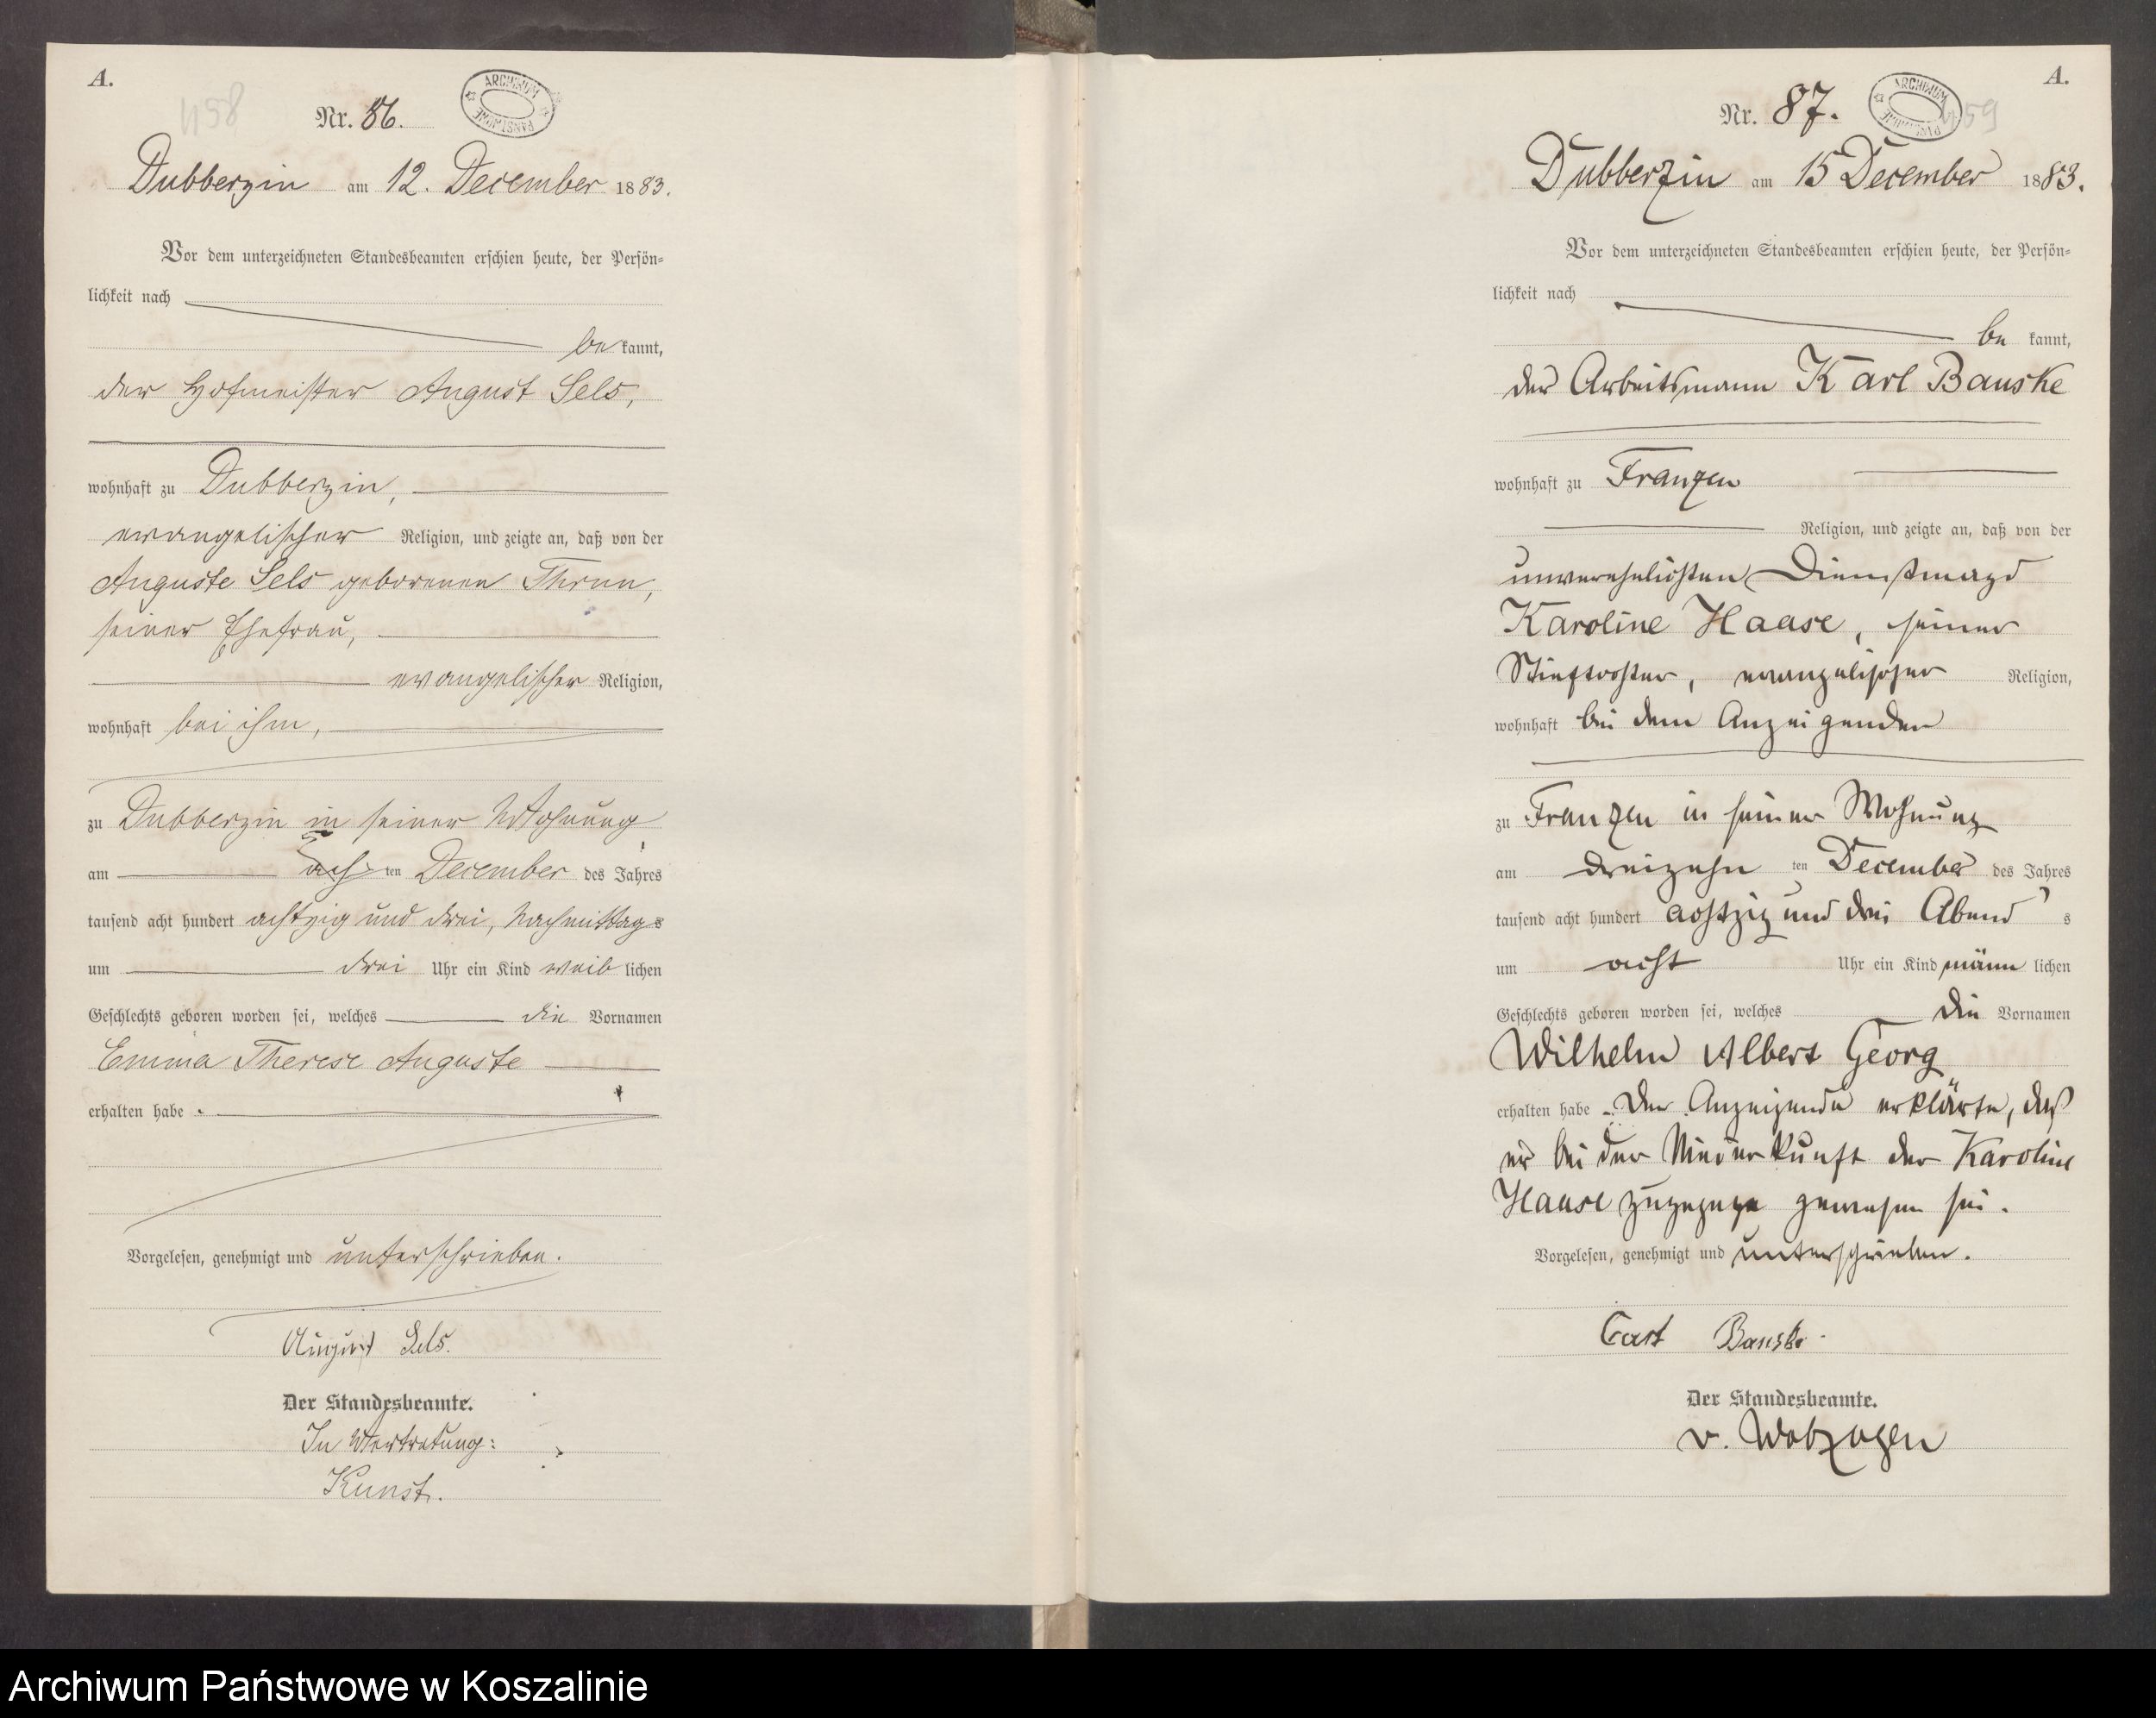 A.
458
Nr. 86.
ARCHIWUM PAŃSTWOWE
Dubberzin am 12. December 1883.
Vor dem unterzeichneten Standesbeamten erschien heute, der Persön-
lichkeit nach
be kannt,
der Hofmeister August Sels,
wohnhaft zu Dubberzin,
evangelischer Religion, und zeigte an, daß von der
Auguste Sels geborenen Thrun,
seiner Ehefrau,
evangelischer Religion,
wohnhaft bei ihm,
zu Dubberzin in seiner Wohnung
am acht ten December des Jahres
tausend acht hundert achtzig und drei, Nachmittags
um drei Uhr ein Kind weib lichen
Geschlechts geboren worden sei, welches die Vornamen
Emma Therese Auguste
erhalten habe.
Vorgelesen, genehmigt und unterschrieben.
August Sels.
Der Standesbeamte.
In Vertretung:
Kunst.
A.
Nr. 87.
ARCHIWUM PAŃSTWOWE
459
Dubberzin am 15 December 1883.
Vor dem unterzeichneten Standesbeamten erschien heute, der Persön-
lichkeit nach
be kannt,
der Arbeitsmann Karl Bauske
wohnhaft zu Franzen
Religion, und zeigte an, daß von der
unverehelichten Dienstmagd
Karoline Haase, seiner
Stieftochter, evangelischer Religion,
wohnhaft bei dem Anzeigenden
zu Franzen in seiner Wohnung
am dreizehn ten December des Jahres
tausend acht hundert achtzig und drei Abend s
um acht Uhr ein Kind männ lichen
Geschlechts geboren worden sei, welches die Vornamen
Wilhelm Albert Georg
erhalten habe. Der Anzeigende erklärte, daß
er bei der Niederkunft der Karoline
Haase zugegen gewesen sei.
Vorgelesen, genehmigt und unterschrieben.
Carl Bauske.
Der Standesbeamte.
v. Wolzogen
Archiwum Państwowe w Koszalinie